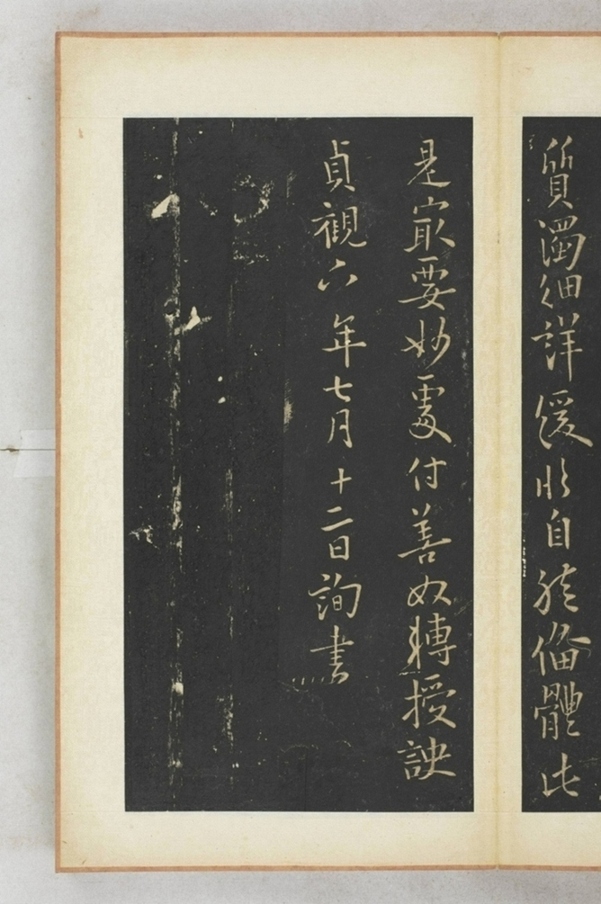 質濁細詳緩臨自然備體此
是冣要妙處付善奴轉授訣
貞觀六年七月十二日詢書